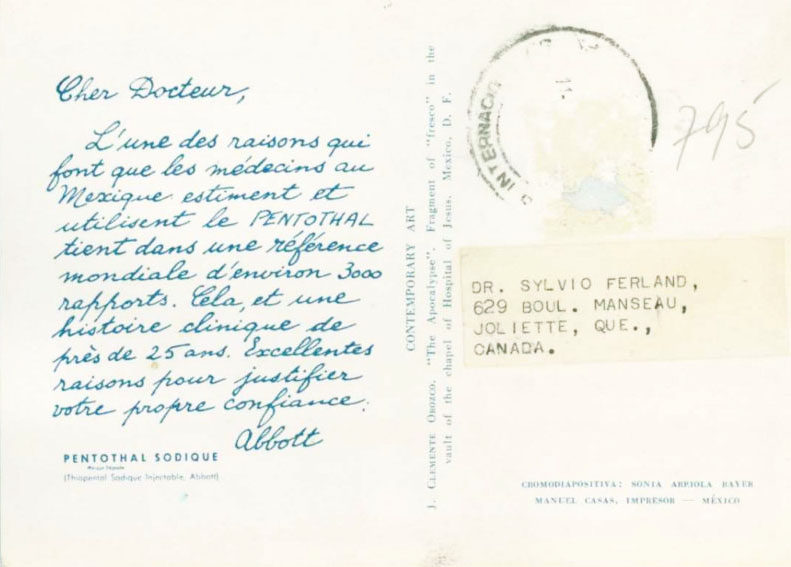 Cher Docteur,
L'une des raisons qui
font que les médecins au
Mexique estiment et
utilisent le PENTOTHAL
tient dans une référence
mondiale d'environ 3000
rapports. Cela, et une
histoire clinique de
près de 25 ans. Excellentes
raisons pour justifier
votre propre confiance.
Abbott
PENTOTHAL SODIQUE
(Thiopental Sodique Injectable, Abbott)
CONTEMPORARY ART
J. CLEMENTE OROZCO, "The Apocalypse". Fragment of "fresco" in the
vault of the chapel of Hospital of Jesus. Mexico, D. F.
INTERNACIO
795
DR. SYLVIO FERLAND,
629 BOUL. MANSEAU,
JOLIETTE, QUE.,
CANADA.
CROMODIAPOSITIVA: SONIA ARRIOLA BAYER
MANUEL CASAS, IMPRESOR — MÉXICO